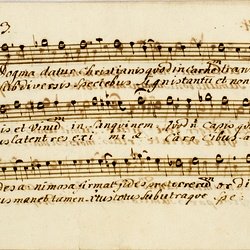 3.
Dogma datur Christianis quod in carnem tran
Sub diversis speciebus signis tantum et non
is et vinum in sanguinem, quod capis
us latent res exi mi æ Caro cibus
des animosa firmat fides præter rerum ordi
us manet tamen Xtus totus sub utraque spe